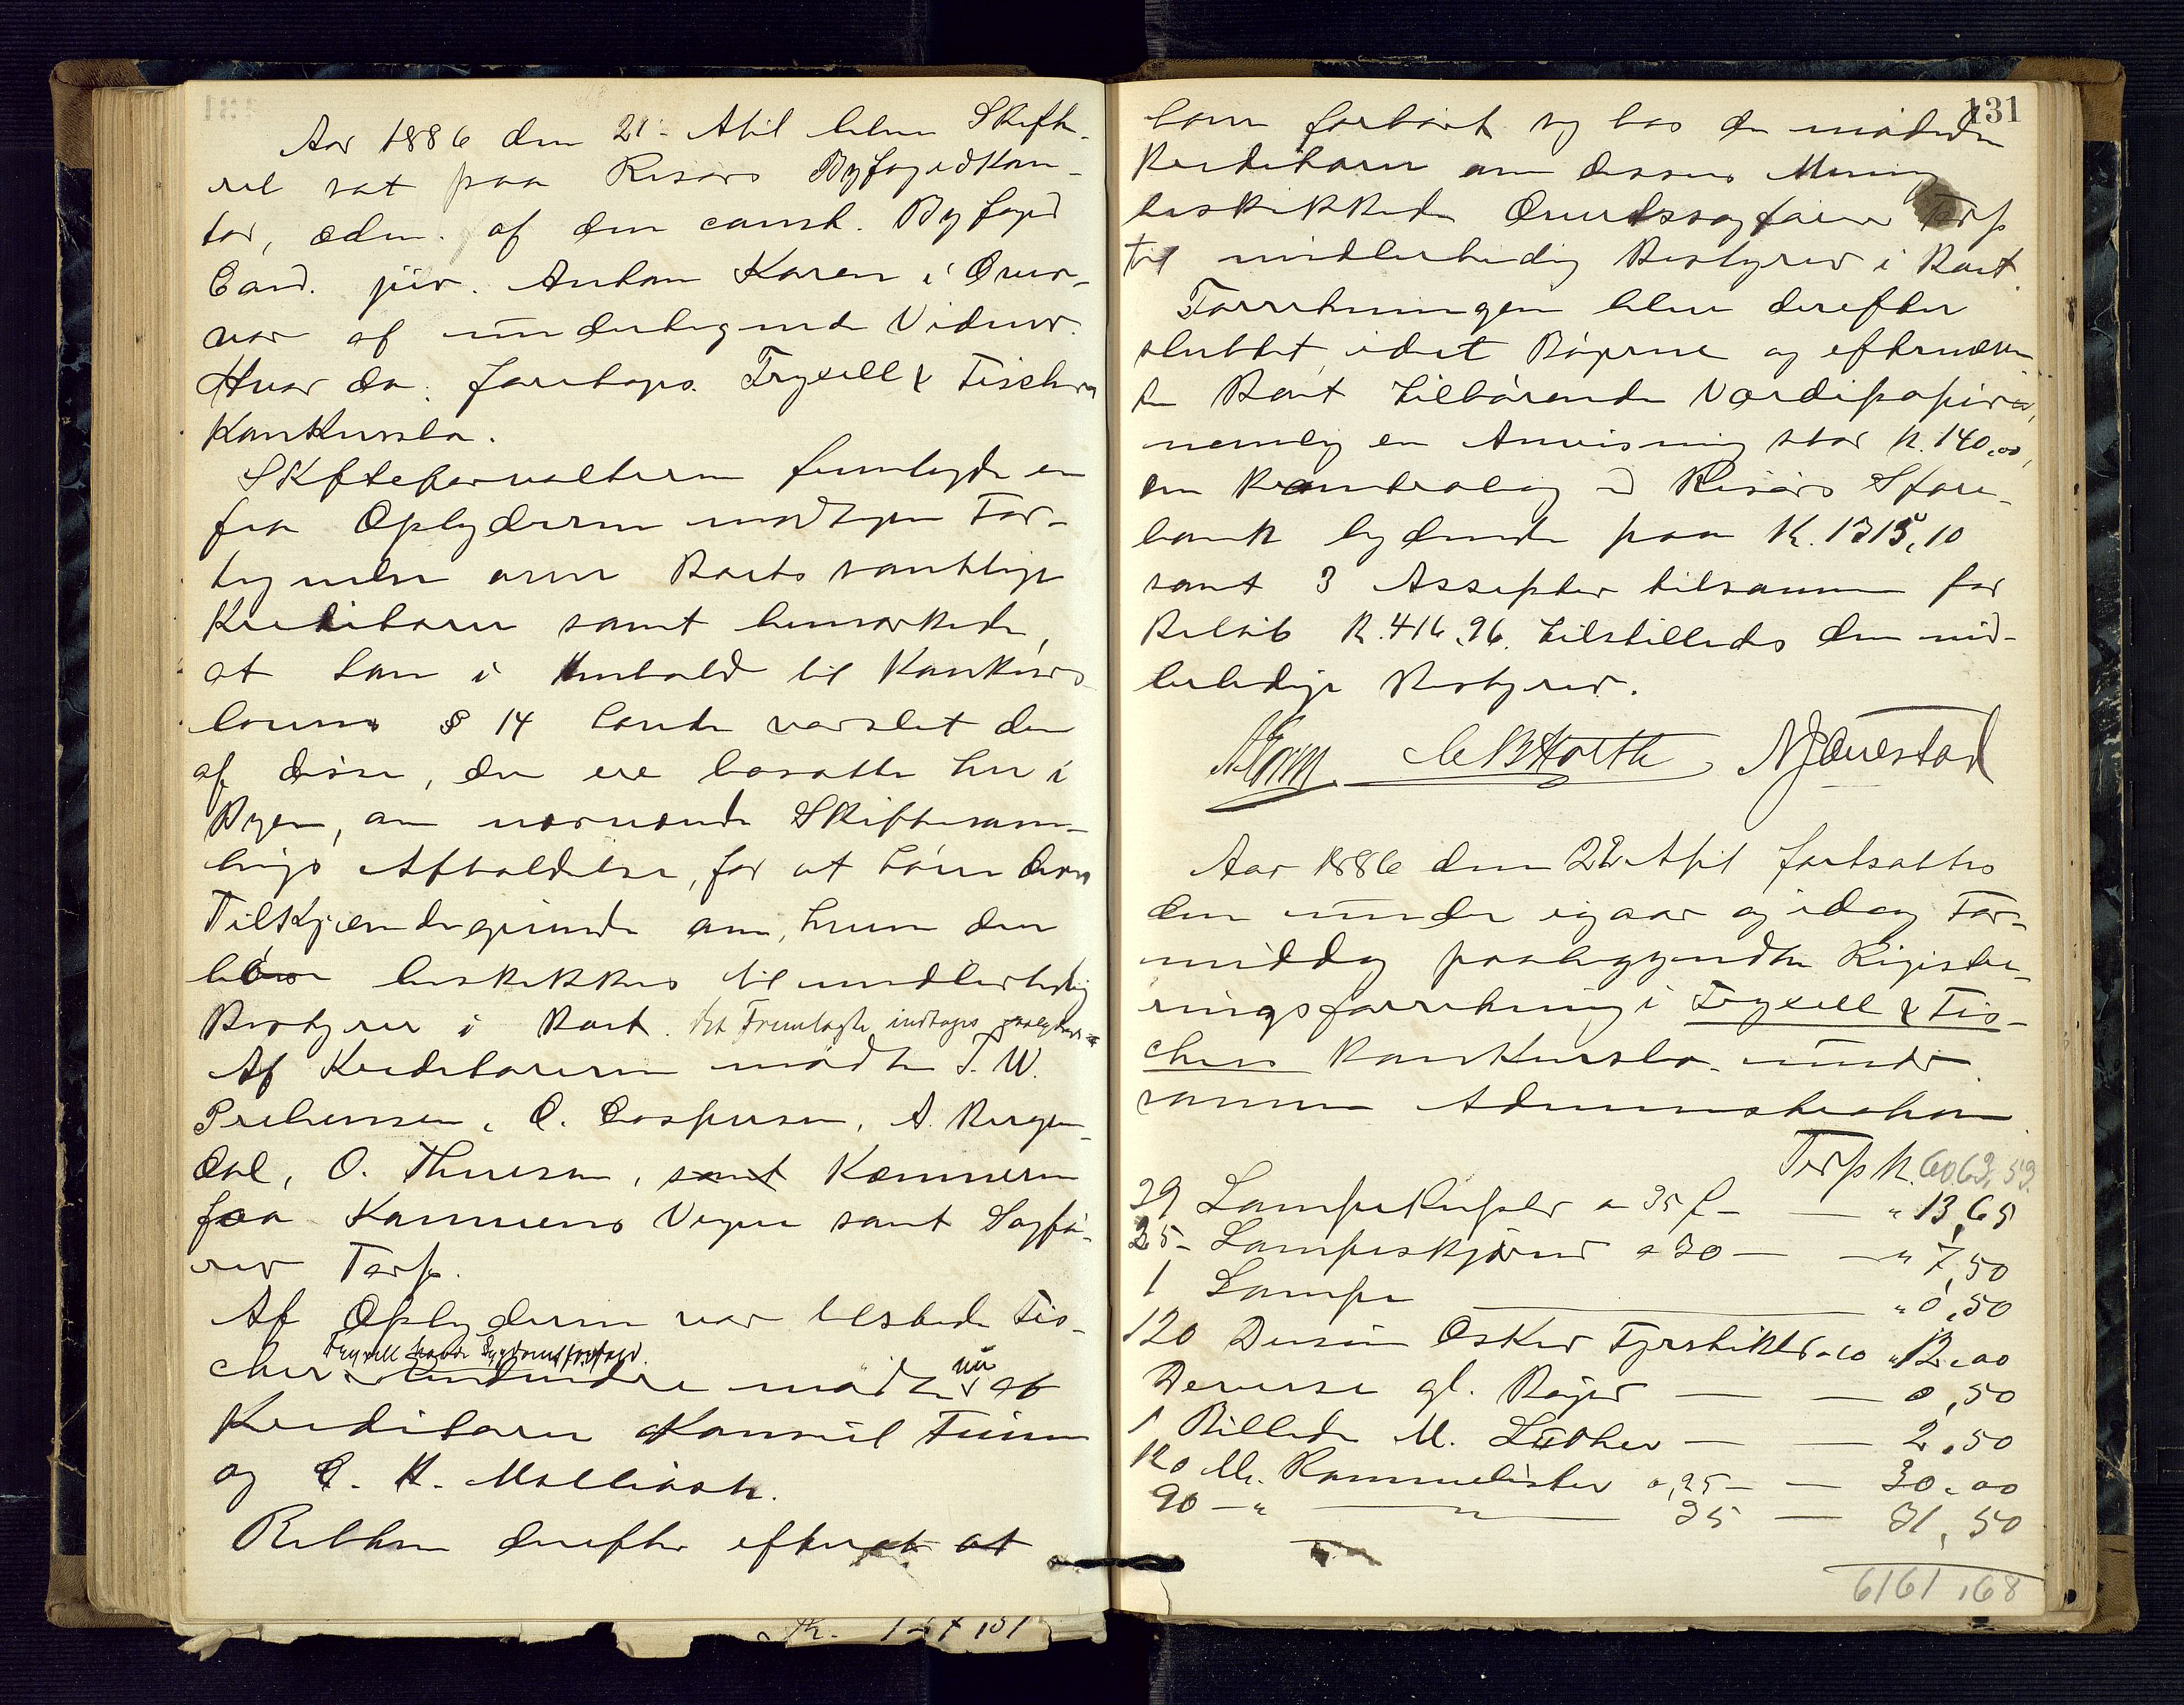 Aar 1886 den 21 April blev Skifte-
ret sat paa Risørs Byfogedkon-
tor, adm. af den const. Byfoged
Cand. jur. Anton Karen i Over-
vær af undertegnede Vidner.
Hvor da: foretoges Fryxell & Fischers
Konkursbo.
Skifteforvalteren fremlagde en
fra Opbyderen modtagen For-
tegnelse over Boets samtlige
Kreditorer samt bemærkede,
at han i Henhold til Konkurs-
lovens § 14 havde varslet dem
af disse, der ere bosatte her i
Byen, om nærværende Skiftesam-
lings Afholdelse, for at høre deres
Tilkjendegivende om, hvem der
bør beskikkes til midlertidig
Bestyrer i Boet. Det Fremlagte indtages
Af Kreditorerne mødte T. W.
Prebensen, C. Caspersen, A. Bergen-
dal, O. Thuesen, samt Kæmneren
paa Kæmnerens Vegne samt Sagfø-
rer Terp.
Af Opbyderne var tilstede Fis-
Fryxell havde Sygdomsforfald.
cher. mødte nu af
Kreditorer Konsul Finne
og C. H. Mallinsk.
Retten derefter efter at at
131
have forhørt sig hos de mødende
Kreditorer om deres Mening
beskikkede Overretssagfører Terp
til midlertidig Bestyrer i Boet.
Forretningen blev derefter
sluttet idet Bøgerne og efternævn-
te Boet tilhørende Værdipapirer,
nemlig en Anvisning stor K. 140,00,
en Kontrabog Risørs Spare-
bank lydende paa K. 1315,10
samt 3 Accepter tilsammen for
Beløb K. 416,96. tilstilledes den mid-
lertidige Bestyrer.
C B Horth NJævestad
Aar 1886 den 22 April fortsattes
den under igaar og idag For-
middag paabegyndte Registre-
ringsforretning i Fryxell & Fis-
chers Konkursbo under
samme Administration
Trsp K. 6063,53.
39 Lampekupler a 35 f — " 13,65
25 - Lampeskjærmer a 30 — — " 7,50
1 Lampe — " 0,50
120 Dusin Æsker Fyrstikker a 10 " 12,00
Diverse gl. Bøger — — 0,50
1 Billede M. Luther — — 2,50
120 M. Rammelister a ,25 — — 30,00
90 — " — " — 35 — 31,50
6161,68